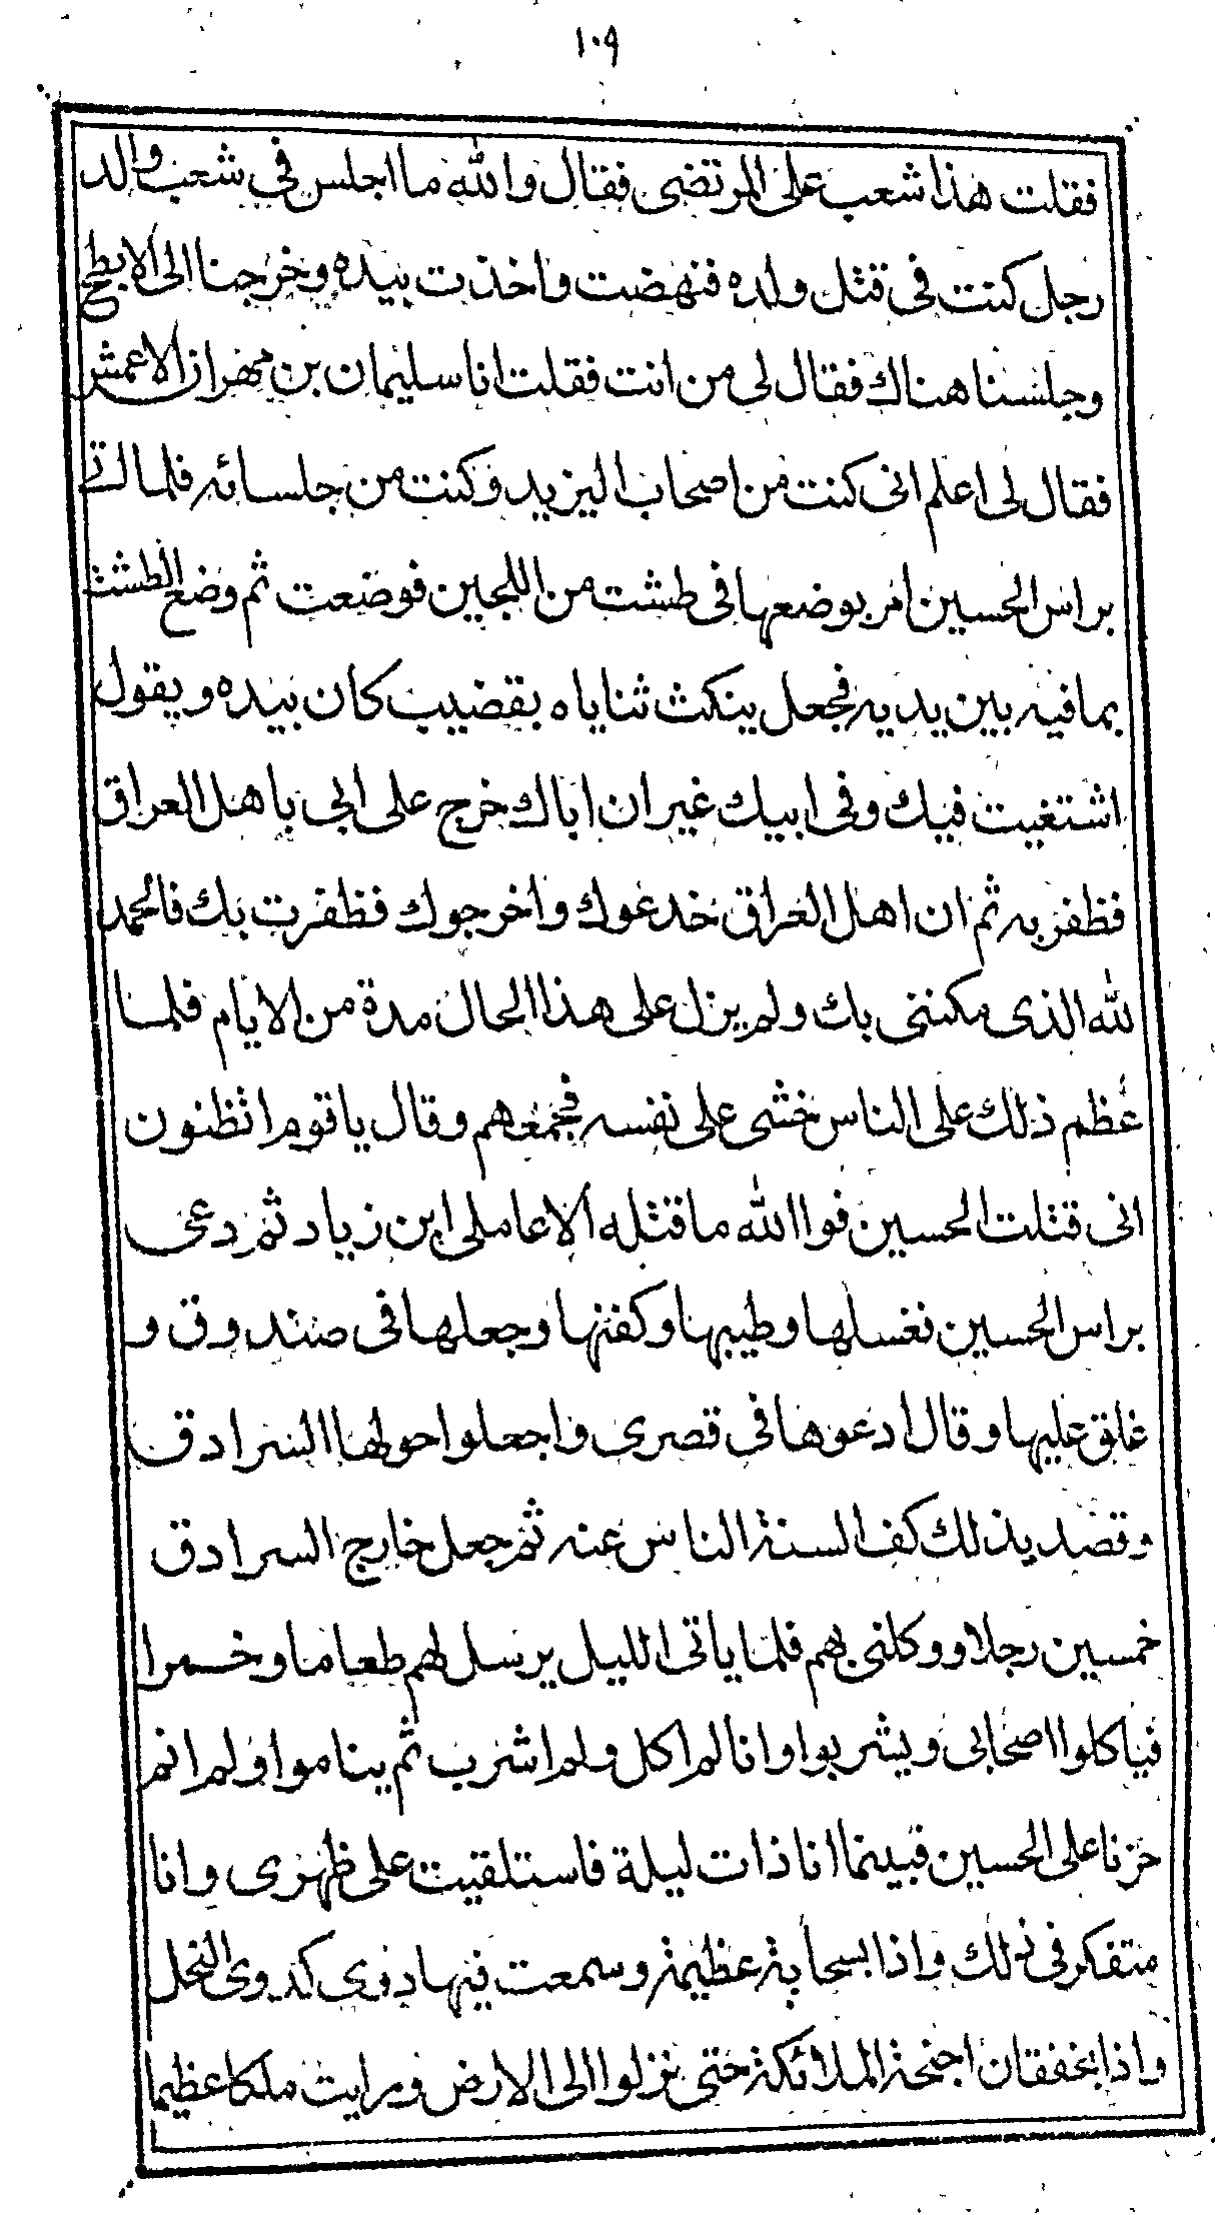 ١٠٩
فقلت هذا شعب على المرتضى فقال والله ما اجلس فى شعب والد
رجل كنت فى قتل ولده فنهضت واخذت بيده وخرجنا الى الابطح
وجلسنا هناك فقال لى من انت فقلت انا سليمان بن مهران الاعمش
فقال لى اعلم انى كنت من اصحاب اليزيد وكنت من جلسائه فلما اتى
براس الحسين امر بوضعها فى طشت من اللجين فوضعت ثم وضع الطشت
بما فيه بين يديه فجعل ينكث ثناياه بقضيب كان بيده ويقول
اشتغيت فيك وفى ابيك غير ان اباك خرج على ابى باهل العراق
فظفر به ثم ان اهل العراق خدعوك واخرجوك فظفرت بك فالحمد
لله الذى مكننى بك ولم يزل على هذا الحال مدة من الايام فلما
عظم ذلك على الناس خشى على نفسه فجمعهم وقال يا قوم اتظنون
انى قتلت الحسين فوا الله ما قتله الا عاملى ابن زياد ثم دعى
براس الحسين فغسلها وطيبها وكفنها وجعلها فى صندوق و
غلق عليها وقال ادعوها فى قصرى واجعلوا حولها السرادق
وقصد بذلك كف السنة الناس عنه ثم جعل خارج السرادق
خمسين رجلا ووكلنى بهم فلما ياتى الليل يرسل لهم طعاما وخمرا
فياكلوا اصحابى ويشربوا وانا لم اكل ولم اشرب ثم يناموا ولم انم
حزنا على الحسين فبينما انا ذات ليلة فاستلقيت على ظهرى وانا
متفكر فى ذلك واذا بسحابة عظيمة وسمعت فيها دوى كدوى النحل
واذا بخفقان اجنحة الملائكة حتى نزلوا الى الارض ورايت ملكا عظيما